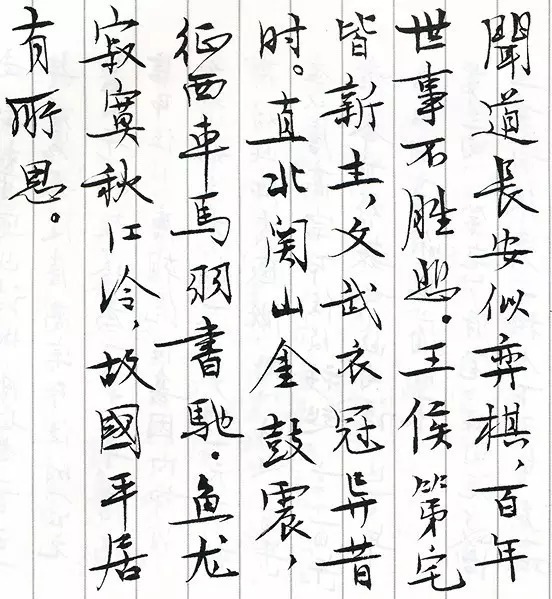 聞道長安似弈棋，百年
世事不胜悲。王侯第宅
皆新主，文武衣冠异昔
时。直北関山金鼓震，
征西車馬羽書馳。鱼龙
寂寞秋江冷，故國平居
有所思。